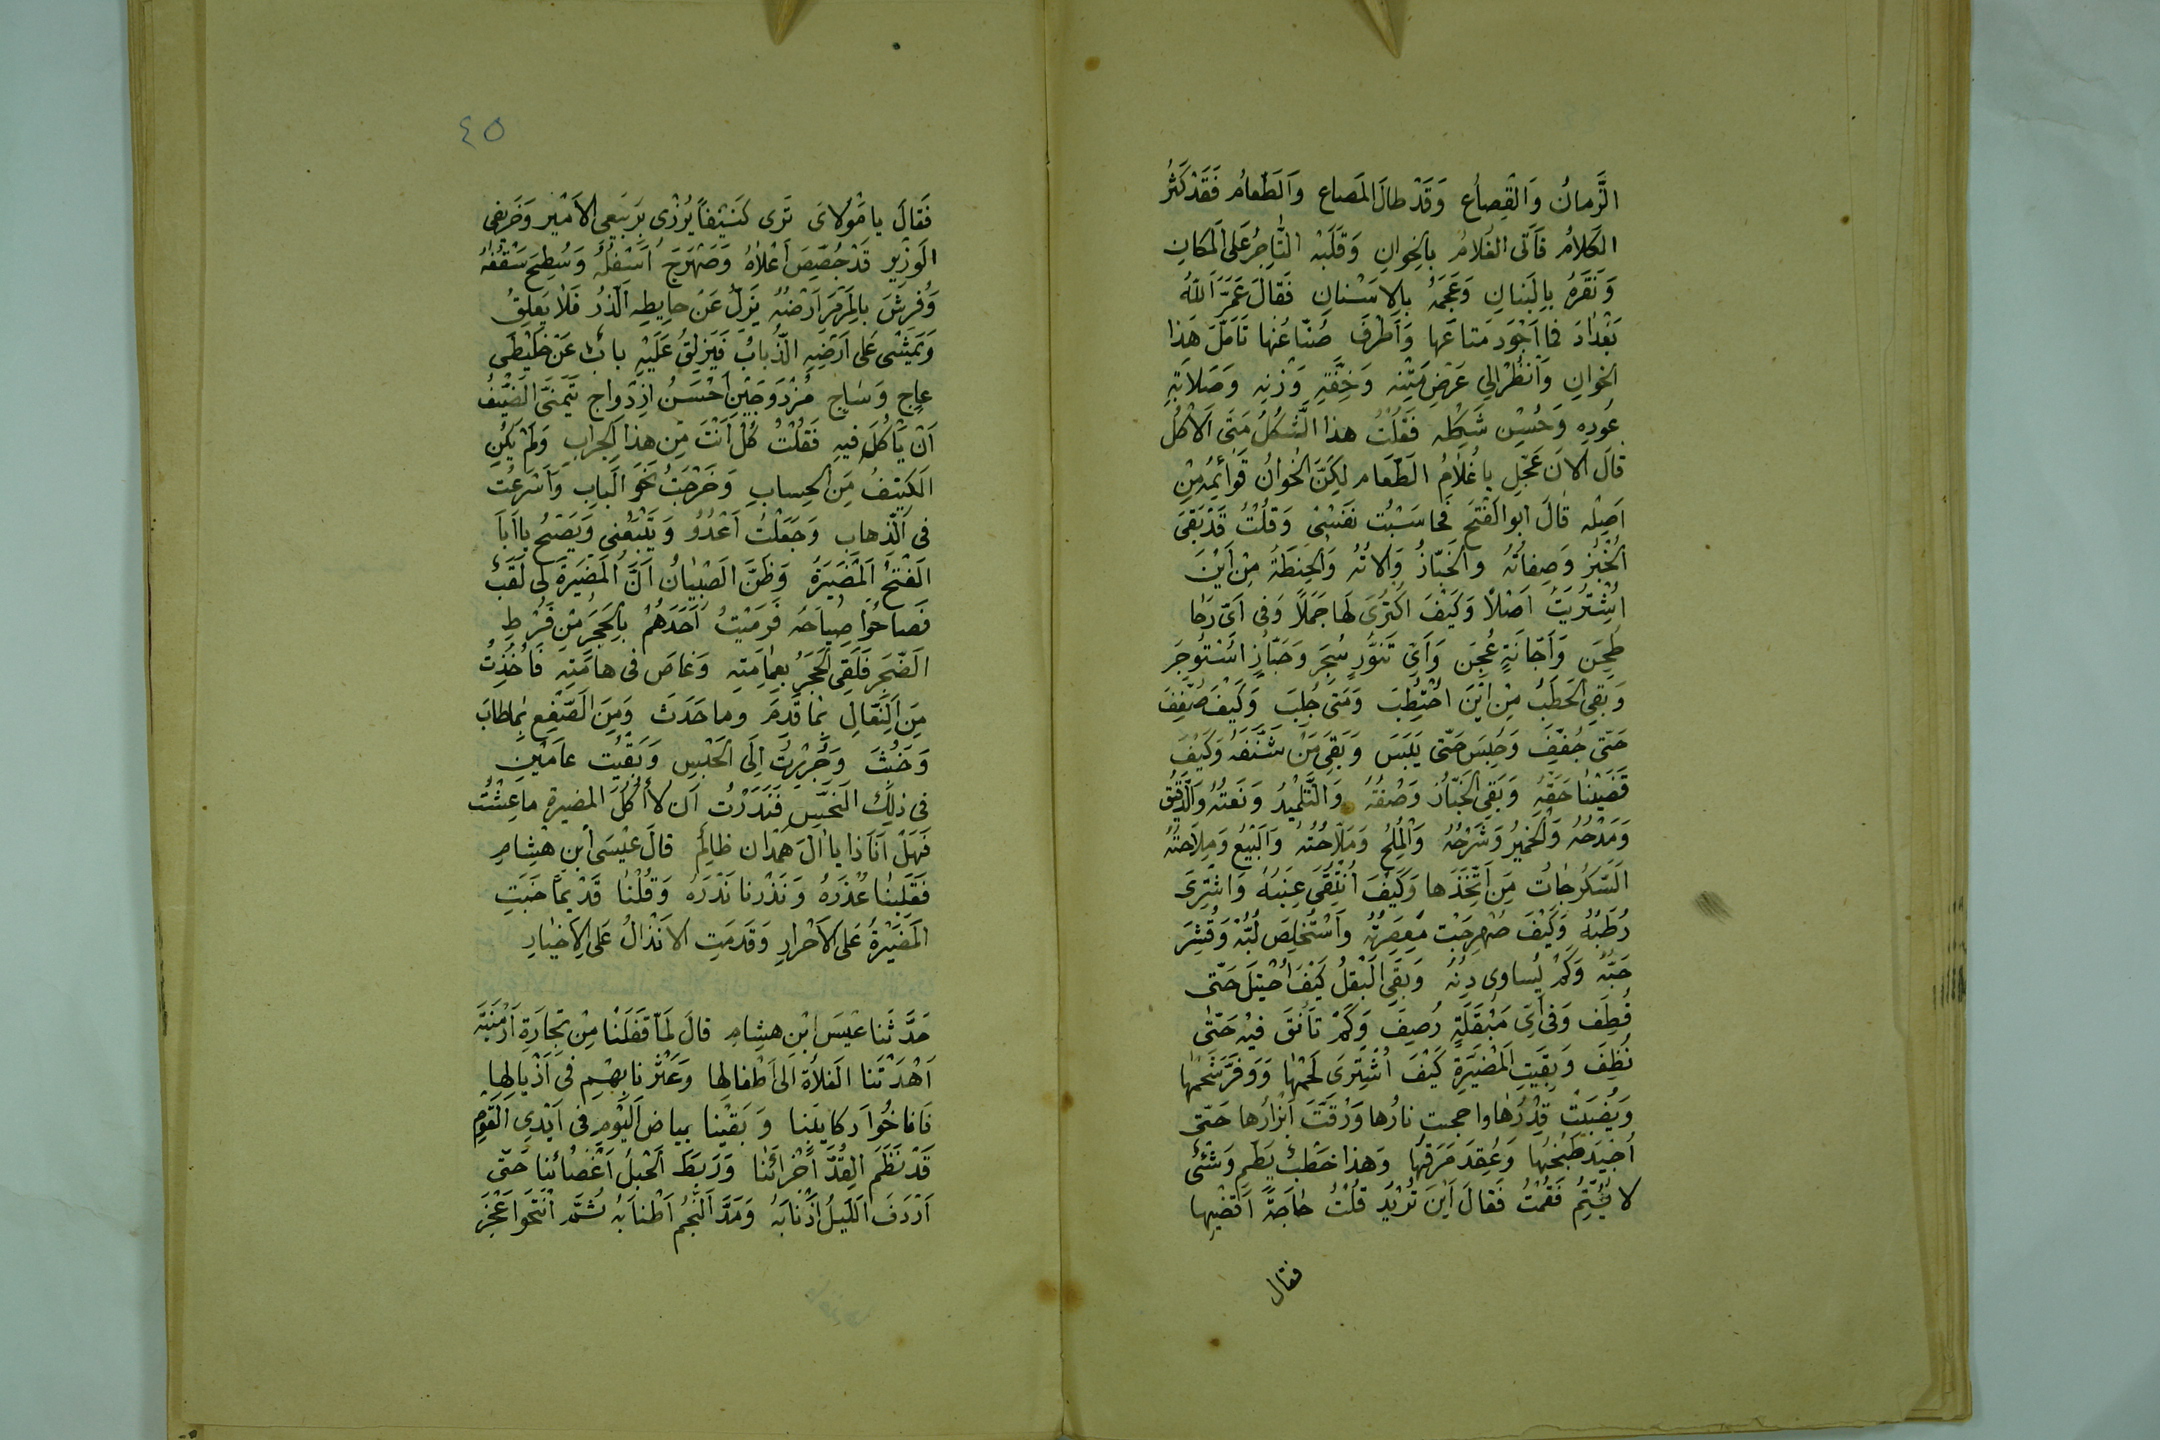 الزَّمانُ وَالْقِصاُع وَقَدْ طالَ المَصاع وَالطَعامُ فَقَدْ كَثُرَ
الكَلامُ فَأَتى الغُلامُ بِالخِوانِ وَقَلَّبَهُ التّاجِرُ عَلى المَكانِ
وَنَقَرَهُ بِالبَنانِ وَعَجَمَهُ بِالاَسْنانِ فَقالَ عَمَّرَ اللّٰهُ
بَغْدادَ فما اَجْوَدَ مَتاعَها وَاَظْرَفَ صُنّاعَها تَاَمَّلْ هَذا
الخِوانِ وَانْظُرْ اِلى عَرْضِ مَتْنِهِ وَخِفَّةِ وَزْنِهِ وَصَلاَبَةِ
عُودِهِ وَحُسْنِ شَكِْلهِ فَقُلْتُ هذا الشَّكْلُ مَتَى الاَكْلُ
قالَ الانَ عَجِّل ياغُلامُ الطَّعام لكِنَّ الخُوانُ قَوائِمُهُ مِنْ
اَصْلِهِ قالَ ابو الفَتْحِ فَجاشَتْ نَفْسى وَقُلْتُ قَدْ بَقِىَ
الخُبْزُ وَصِفاتُهُ والخَبّازُ وَالاتُهُ وَالحِنطَةُ مِنْ اَيْنَ
اشْتُرِيَتْ اَصْلاً وَكَيْفَ اكْتُرَى لَها حَمَلاً وَفى اَىّ رَحا
طُحِنَ وَاَجّانَةٍ عُجِنَ وَاَىّ تَنوُّرٍ سُجِرَ وَخَبّازٍ اسْتُوجِرَ
وَبقِىَ الحَطَبُ مِنْ اَيْنَ احْتُطِبَ وَمَتى جُلِبَ وَكَيْفَ صُفِّفَ
حَتّى جُفِّفَ وَحُبِسَ حَتّى يَبِسَ وَبَقِىَ مَنْ شَنَّفَهُ وَكَيْفَ
قَضَيْنا حَقَّهُ وَبَقِىَ الخَبّازُ وَصْفُهُ وَالتِّلْمِيذُ وَنَعتُهُ وَالدَّقِيْقُ
وَمَدْحُهُ وَالْخمِيرُ وَشَرْحُهُ وَالْمِلْحُ وَمَلاَّحُتُهُ وَالبَيْعُ وَمِلاَحَتُهُ
السُّكُرجاتُ مَنِ اتَّخَذَها وَكَيْفَ انْتُقَى عِنَبُهُ وَاشْتُرِىَ
رُطَبُهُ وَكَيْفَ صُهْرِجَت مِعِصَرَتُهُ وَاسْتُخلِصَ لُبُّهُ وَقُشِرَ
حَبُّهُ وَكَمْ يُساوى دِنُهُ وَبَقَى البَقْلُ كَيْفَ اُحْتِيْلَ حَتّى
قُطِفَ وَفى اَىّ مَبْقَلَةٍ رُصِفَ وَكَمْ تَاَنَّقَ فيهُ حَتّى
نُظِفَ وَبِقِيَتِ المَضِيْرَةِ كَيْفَ اشْتِرَى لَحْمُهَا وَوفِّرَ شَحْمُها
وَنُصِبَتْ قِدْرُها واججت نارُها وَدُقَّتَ اَبْزارُها حَتّى
اُجِيْدَ طَبْخُها وَعُقِدَ مَرَقُها وَهذا خَطْبٌ يَطِمّ وَشَئٌ
لا يُتِمُّ فَقُمْتُ فَقالَ اَيْنَ تُرْيَدُ قُلْتُ حاجَةً اَقْضيها
فقال
٤٥
فَقالَ يا مَوْلاىَ تَرى كَنِيْفاً يُزْرى بِرَبيَعِى الاَمْيرِ وَخَريفى
الوَزِيْرِ قَدْ جُصِّصَ اَعْلاهُ وَصُهْرِجَ اَسْفَلُهُ وَسُطِحَ سَقْفُهُ
وَفُرِشَ بالمَرْمَرِ اَرْضُهُ يَزِلُّ عَنْ حايِطِهِ الذَرُّ فَلا يَعلِقُ
وَتَمَشّى عَلى اَرْضِهِ الذُّبابُ فَيَزلِقُ عَلَيْهِ بابٌ عَنْ خَلِيْطَى
عاجٍ وَساجٍ مُزْدَوَجَيْنِ اَحْسَنُ ازْدِواجٍ يَتَمَنَّى الضَّيْفُ
اَنْ يَأْكُلَ فيهِ فَقُلْتُ كُلْ اَنْتَ مِن هِذا الجِرابِ وَلَمْ يَكُنِ
الكَنِيْفُ مِنَ الحِسابِ وَخَرَجْتُ نَحْوَ البابِ وَاَسْرَعْتُ
فى الذَّهابِ وَجَعَلْتُ اَعْدُوُ وَيَتْبَعُنى وَيَصِيْحُ يااَبا
الفَتحُ المَضَيَرَةُ وَظَنَّ الصِبْيانُ اَنَّ المَضْيَرةَ لى لَقَبٌ
فَصاحُوا صِياحَهُ فَرَمَيْتُ اَحَدَهُمْ بِالحَجَرِ مِنْ فَرْطِ
الضَّجَرِ فَلَقِىَ الحَجَرُ بِعِمامَتِهِ وَغاصَ فى هامَتِهِ فَاُخُذِتُ
مِنَ النِّعالِ بِما قَدِمَ وما حَدَثَ وَمِنَ الصَّفْعِ بِما طابَ
وَخَبُثَ وَجُرِرْتُ اِلَى الحَبْسِ وَبَقَيْت عامَيْنِ
فى ذلِكَ النَحّسِ فَنَذَرْتُ اَن لا أكُلَ المضيرةِ ما عِشْتُ
فَهَلْ اَنَا ذا يا الَ هَمَدْان ظالِمٌ قالَ عيْسَى ابْنِ هْشِامٍ
فَقَبِلَنا عُذْرَهُ وَنَذَرْنا نَذْرَهُ وَقُلْنا قَدْيماً جَنَتِ
المَضَيْرةُ عَلى الاَحْرارِ وَقَدَمَتِ الانذالُ عَلى الاِخْيارِ
حَدَّثَنا عيْسَ ابْنِ هشِامٍ قالَ لَمّا قَفَلْنا مِنْ تِجّارَةِ اَرْمَنِيَّه
اَهْدَتْنا الفَلاةُ اِلى اَطْفالِها وَعَثَرْنا بِهْمِ فى اَذْيالِها
فَاناخُوا رَكايِبَنا وَبَقَيْنا بِبياضِ اليَوْمِ فى اَيْدِى القَوْمِ
قَدْ نَظَمَ القِدُّ اَحْزائَنا وَرَبَطَ الحَبلُ اَعْضائنا حَتّى
اَرْدَفَ اللَّيلُ اَذْنابَهُ وَمَدَّ النَّجْمُ اَطْنابَهُ ثُمَّ انْتَحَوا عَجُزَ